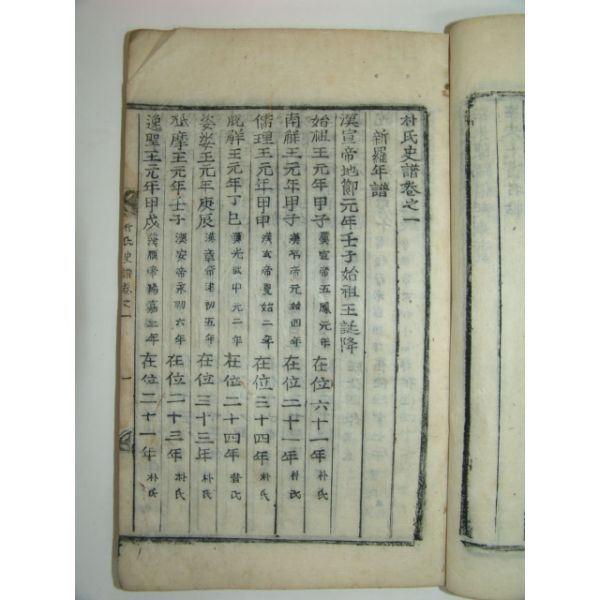 朴氏史譜卷之一
新羅年譜
漢宣帝地節元年壬子始祖王誕降
始祖王元年甲子漢宣帝五鳳元年在位六十一年朴氏
南解王元年甲子漢平帝元始四年在位二十一年朴氏
儒理王元年甲申漢在位三十四年朴氏
脫解王元年丁巳漢光武中元二年在位二十四年昔氏
婆娑王元年庚辰漢章帝建初五年在位三十三年朴氏
祗摩王元年壬子漢安帝永初六年在位二十三年朴氏
逸聖王元年甲戌漢順帝陽嘉三年在位二十一年朴氏
朴氏史譜卷之一 一